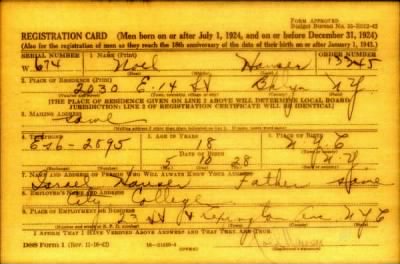 FORM APPROVED
REGISTRATION CARD (Men born on or after July 1, 1924, and on or before December 31, 1924)
(Also for the registration of men as they reach the 18th anniversary of the date of their birth on or after January 1, 1943.)
1 NAME (Print)
W 674 Noel
2 PLACE OF RESIDENCE (Print)
2030 E. Bklyn N.Y.
[THE PLACE OF RESIDENCE GIVEN ON LINE 2 ABOVE WILL DETERMINE LOCAL BOARD
JURISDICTION; LINE 2 OF REGISTRATION CERTIFICATE WILL BE IDENTICAL]
3 MAILING ADDRESS
Same
4 TELEPHONE 5 AGE IN YEARS 6 PLACE OF BIRTH
2895 18 N.Y.C
DATE OF BIRTH
28 N.Y.
7 NAME AND ADDRESS OF PERSON WHO WILL ALWAYS KNOW YOUR ADDRESS
Father Same
8 EMPLOYER'S NAME AND ADDRESS
City College
9 PLACE OF EMPLOYMENT OR BUSINESS
23 Lexington Ave N.Y.C
I AFFIRM THAT I HAVE VERIFIED ABOVE ANSWERS AND THAT THEY ARE TRUE.
DSS Form 1 (Rev. 11-16-42) (OVER)